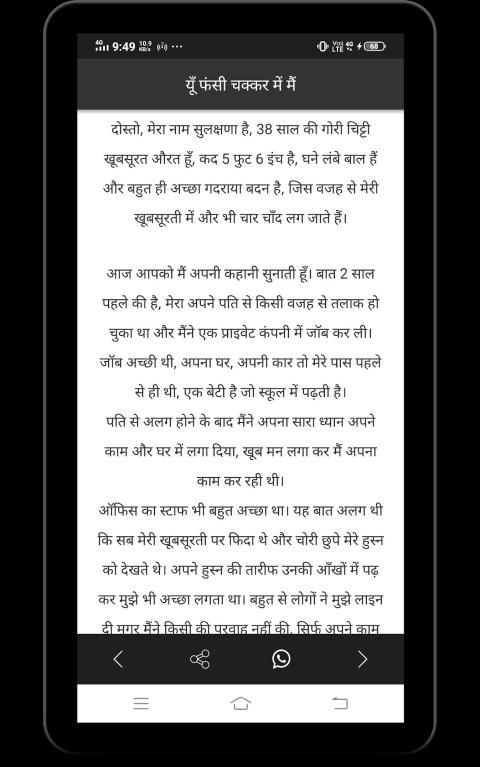 4G 9:49 10.9 KB/s ···
Vo) LTE 4G 68
यूँ फंसी चक्कर में मैं
दोस्तो, मेरा नाम सुलक्षणा है, 38 साल की गोरी चिट्टी
खूबसूरत औरत हूँ, कद 5 फुट 6 इंच है, घने लंबे बाल हैं
और बहुत ही अच्छा गदराया बदन है, जिस वजह से मेरी
खूबसूरती में और भी चार चाँद लग जाते हैं।
आज आपको मैं अपनी कहानी सुनाती हूँ। बात 2 साल
पहले की है, मेरा अपने पति से किसी वजह से तलाक हो
चुका था और मैंने एक प्राइवेट कंपनी में जॉब कर ली।
जॉब अच्छी थी, अपना घर, अपनी कार तो मेरे पास पहले
से ही थी, एक बेटी है जो स्कूल में पढ़ती है।
पति से अलग होने के बाद मैंने अपना सारा ध्यान अपने
काम और घर में लगा दिया, खूब मन लगा कर मैं अपना
काम कर रही थी।
ऑफिस का स्टाफ भी बहुत अच्छा था। यह बात अलग थी
कि सब मेरी खूबसूरती पर फिदा थे और चोरी छुपे मेरे हुस्न
को देखते थे। अपने हुस्न की तारीफ उनकी आँखों में पढ़
कर मुझे भी अच्छा लगता था। बहुत से लोगों ने मुझे लाइन
दी मगर मैंने किसी की परवाह नहीं की, सिर्फ अपने काम